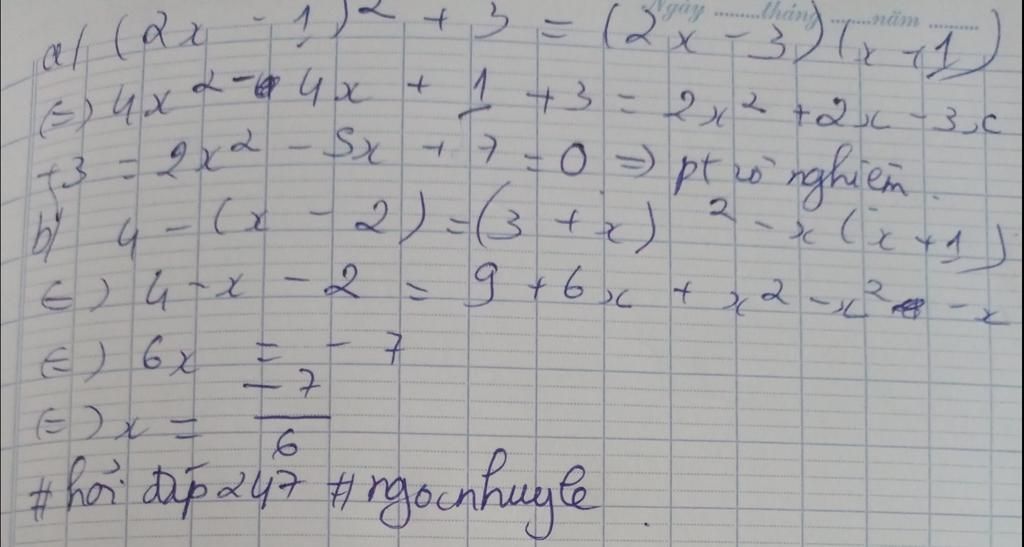 Ngày ......... tháng ......... năm .........
a/ (2x - 1)² + 3 = (2x - 3)(x + 1)
(=) 4x² - 4x + 1 + 3 = 2x² + 2x - 3x
+3 = 2x² - 5x + 7 = 0 => pt vô nghiệm.
b/ 4 - (x - 2) = (3 + x)² - x(x + 1)
(=) 4 - x - 2 = 9 + 6x + x² - x² - x
(=) 6x = - 7
(=) x = -7/6
#hỏi đáp247 #ngocnhuyle